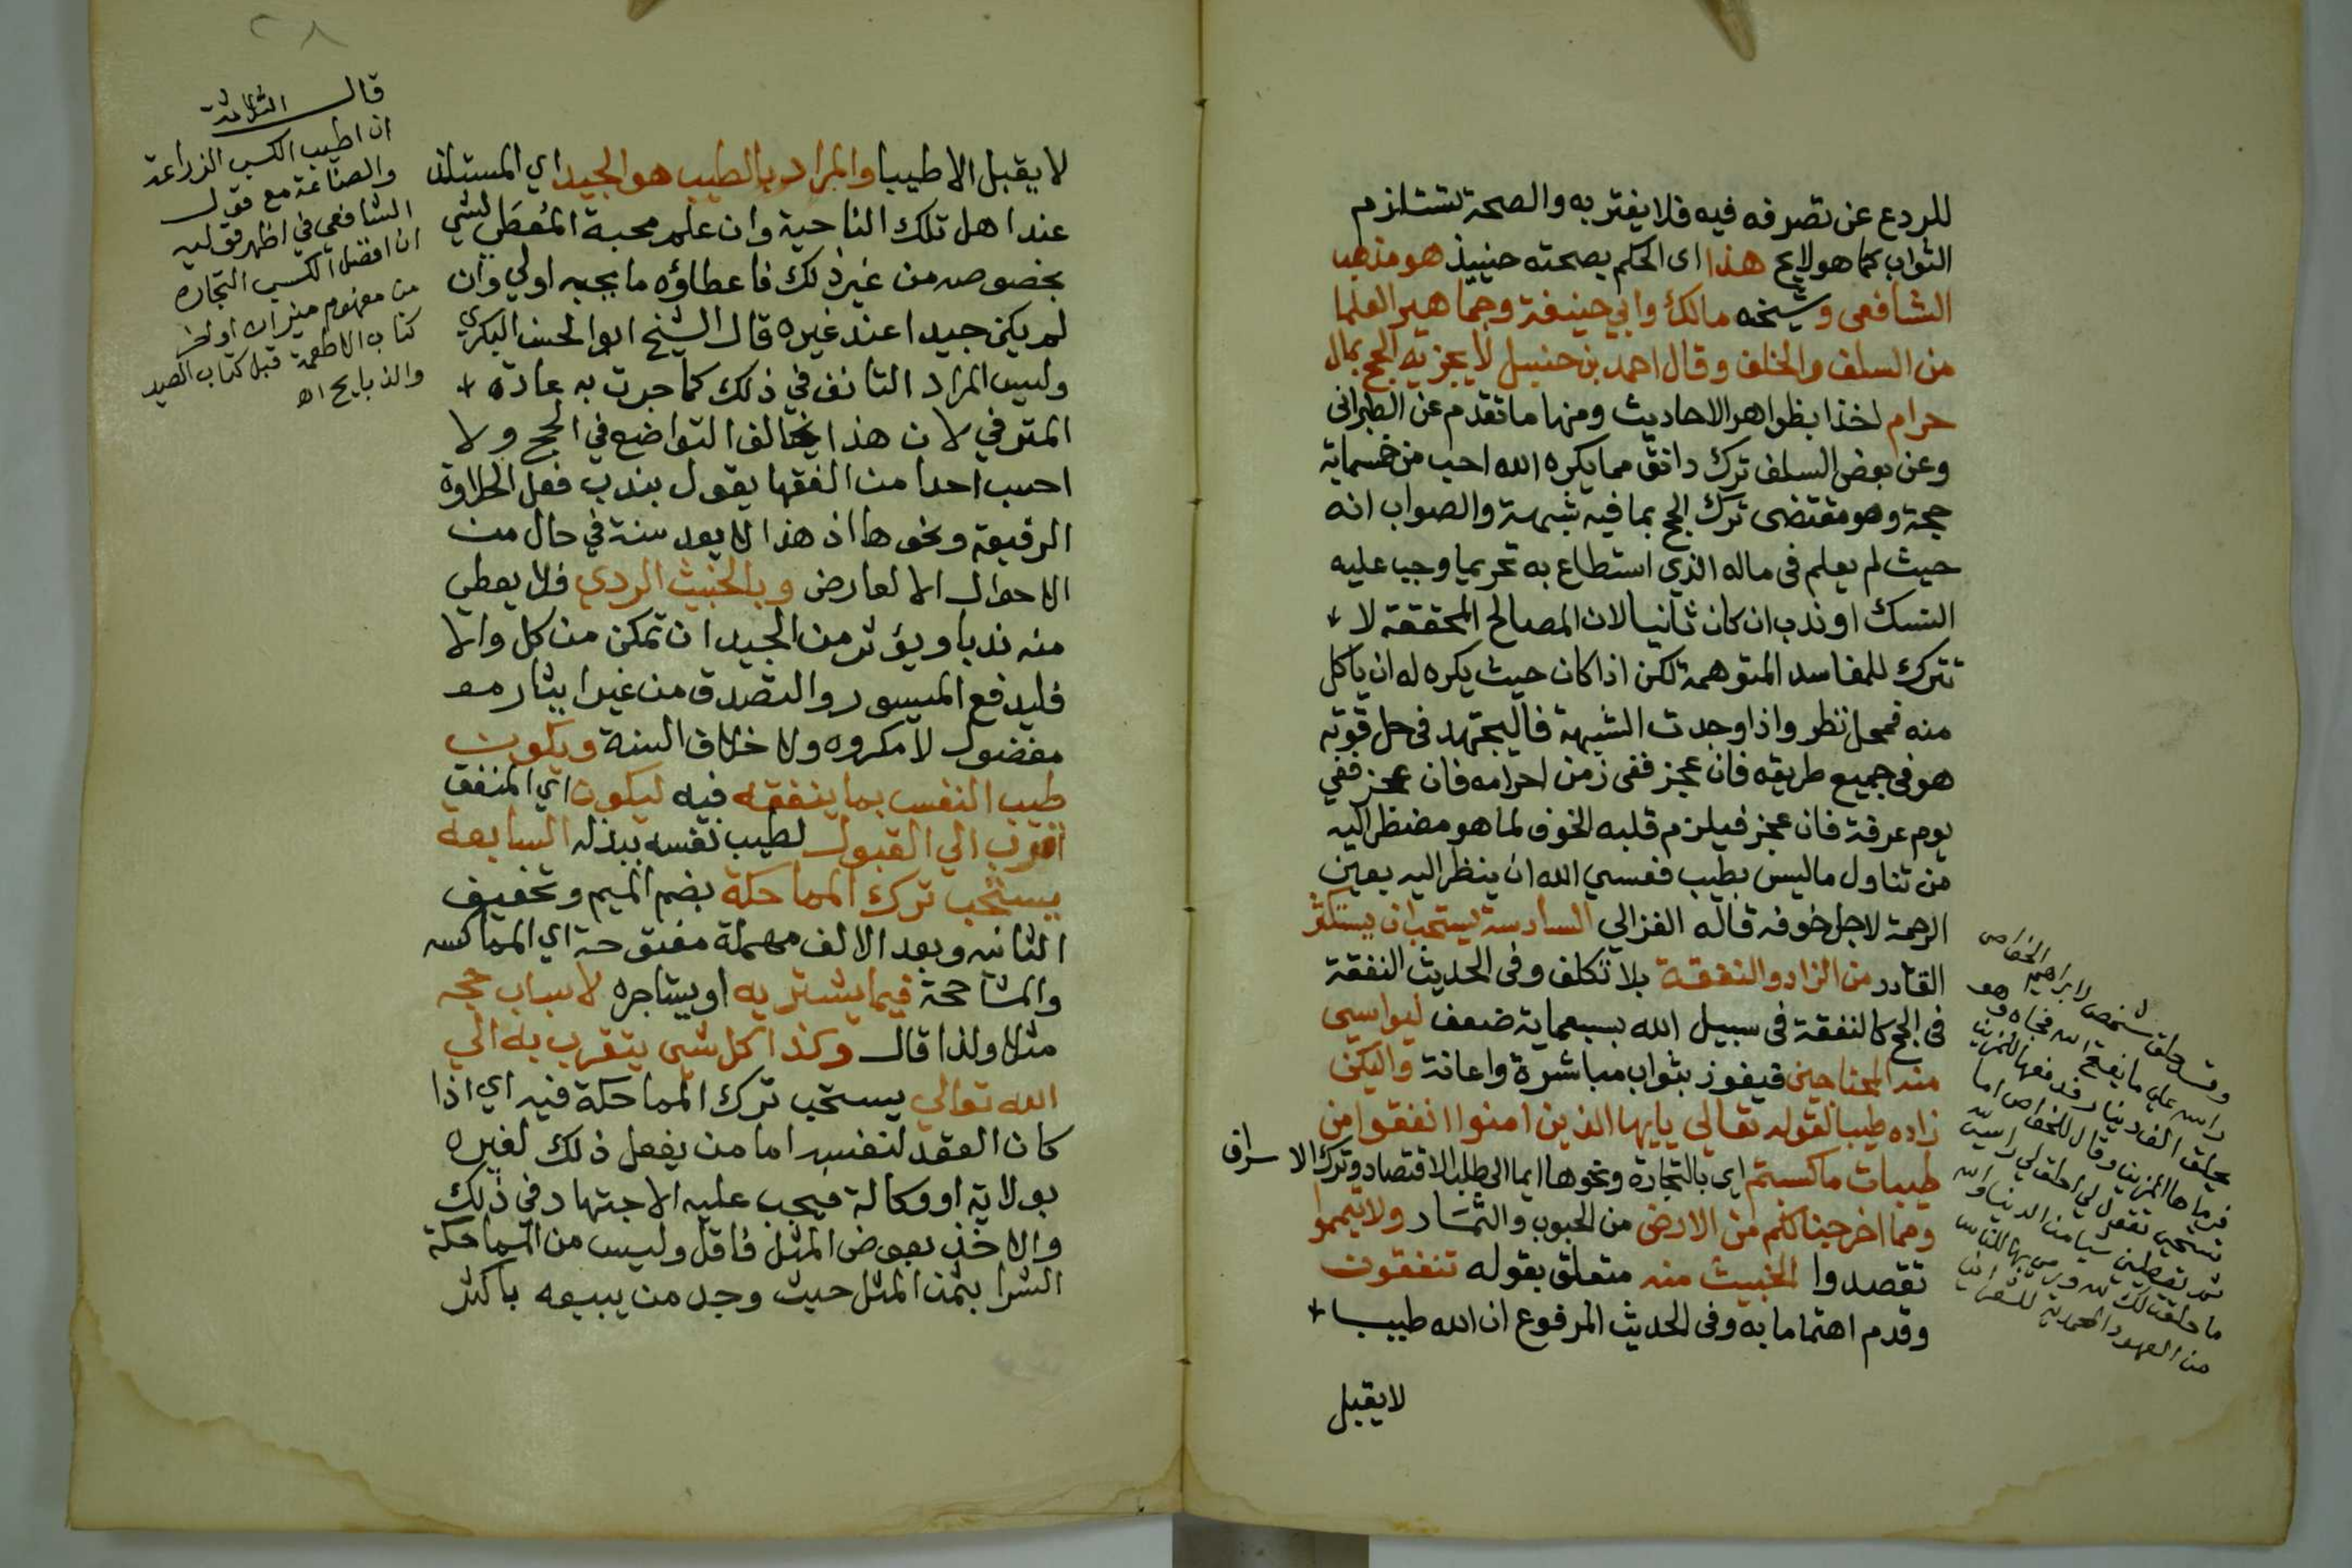 للردع عن تصرفه فيه فلا يغتر به والصحة تستلزم
الثواب كما هو لايح هذا اى الحكم بصحته حينيذ هو مذهب
الشافعى وشيخه مالك وابي حنيفة وجماهير العلما
من السلف والخلف وقال احمد بن حنبل لا يجزيه الحج بمال
حرام اخذا بظواهر الاحاديث ومنها ما تقدم عن الطبرانى
وعن بعض السلف ترك دانق مما يكره الله احب من خمسماية
حجة وهو مقتضى ترك الحج بما فيه شبهة والصواب انه
حيث لم يعلم فى ماله الذي استطاع به تحريما وجب عليه
النسك او ندب ان كان ثانيا لان المصالح المحققة لا
تترك للمفاسد المتوهمة لكن اذا كان حيث يكره له ان ياكل
منه فمحل نظر واذا وجدت الشبهة فاليجتهد فى حل قوته
هو فى جميع طريقه فان عجز ففى زمن احرامه فان عجز ففي
يوم عرفة فان عجز فيلزم قلبه الخوف لما هو مضطر اليه
من تناول ما ليس بطيب فعسي الله ان ينظر اليه بعين
الرحمة لاجل خوفه قاله الغزالي السادسة يستحب ان يستكثر
القادر من الزاد والنفقة بلا تكلف وفى الحديث النفقة
فى الحج كالنفقة فى سبيل الله بسبعماية ضعف ليواسي
منه المحتاجين فيفوز بثواب مباشرة واعانة واليكن
زاده طيبا لقوله تعالي يايها الذين امنوا انفقوا من
طيبات ما كسبتم اي بالتجارة ونحوها ايما الى طلب الاقتصاد وترك الاسراف
ومما اخرجنا لكم من الارض من الحبوب والثمار ولا تيمموا
تقصدوا الخبيث منه متعلق بقوله تنفقون
وقدم اهتماما به وفى الحديث المرفوع ان الله طيب
لا يقبل
وقد حلق شخص لابراهيم الخواص
راسه علي ما يفتح الله فجاه وهو
يحلق الف دينار فدفعها للمزين
فرماها المزين وقال للخواص اما
تستحي تقول لي احلق لي راسي لله
ثم تعطيني شيا من الدنيا والله
ما حلقت لك الا لله ورمى بها للناس
من العهود المحمدية للشعراني
٢٨
قال الثلاثة
ان اطيب الكسب الزراعة
والصناعة مع قول
الشافعي في اظهر قوليه
ان افضل الكسب التجارة
من مفهوم ميزان اواخر
كتاب الاطعمة قبل كتاب الصيد
والذبايح اه
لا يقبل الا طيبا والمراد بالطيب هو الجيد اي المستلذ
عند اهل تلك الناحية وان علم محبة المُعطَي لشي
بخصوصه من غير ذلك فاعطاؤه ما يحبه اولي وان
لم يكن جيدا عند غيره قال الشيخ ابو الحسن البكري
وليس المراد التانف في ذلك كما جرت به عادة
المترفي لان هذا يخالف التواضع في الحج ولا
احسب احدا من الفقها يقول بندب فعل الحلاوة
الرفيعة ونحوها اذ هذا لا يعد سنة في حال من
الاحوال الا لعارض وبالخبيث الردي فلا يعطي
منه ندبا ويؤثر من الجيد ان تمكن من كل والا
فليدفع الميسور والتصدق من غير ايثار مـ
مفضول لا مكروه ولا خلاف السنة ويكون
طيب النفس بما ينفقه فيه ليكون اي المنفق
اقرب الي القبول لطيب نفسه ببذله السابعة
يستحب ترك المماحكة بضم الميم وتخفيف
الثانيه وبعد الالف مهملة مفتوحة اي المماكسه
والمشاححة فيما يشتريه او يستاجره لاسباب حجه
مثلا ولذا قال وكذا كل شي يتقرب به الي
الله تعالي يستحب ترك المماحكة فيه اي اذا
كان العقد لنفسه اما من يفعل ذلك لغيره
بولاية او وكالة فيجب عليه الاجتهاد في ذلك
والاخذ بعوض المثل فاقل وليس من المماحكة
الشرا بثمن المثل حيث وجد من يبيعه باكثر